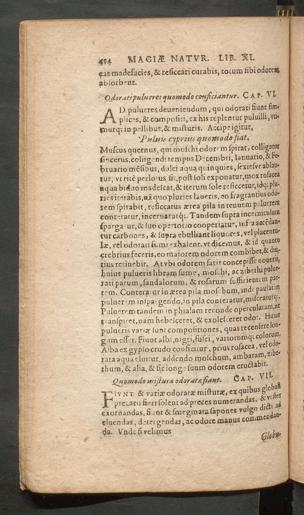 454 MAGIÆ NATVR. LIB. XI.
eas madefacies, & resiccari curabis, totum sibi odorem
absorbent.
Odorati pulueres quomodo conficiantur. CAP. VI.
AD pulueres deueniendum, qui odorati fiunt sim-
plices, & compositi, ex his replentur puluilli,
mutq; in pellibus, & misturis. Accipe igitur,
Puluis cyprius quomodo fiat.
Muscus quernus, qui moschi odorem spirat, colligatur
sincerus, colligendi tempus Decembri, Ianuario, & Fe-
bruario
aqua biduo madescat, & iterum sole
spitabit, resiccatus area pila in tenuem puluerem
conteratur, incernaturq;. Tandem supra incerniculum
spargatur, & suo operculo cooperiatur, infra
tur carbones, & supra
læ, vel odorati sumi exhalent, vt dicemus, & id quanto
crebrius feceris, eo maiorem odorem combibet, & diu-
tius retinebit. At vbi odorem satis
huius pulueris libram sume, moschi, ac zibethi pulue-
rati parum, sandalorum, & rosarum sufficientem par-
tem. Conteratur in ærea pila moschum, inde paulatim
puluerem inspargendo, in pila conteratur,
Puluerem tandem in phialam reconde operculatam, ne
transpiret, nam hebesceret, & exolesceret odor. Huius
pulueris variæ sunt compositiones, quas recensere lon-
gum esset. Fiunt albi, nigri, fusci, variorumq; colorum.
Alba ex gypso crudo conficitur, prius rosacea, vel odo-
rata aqua eluitur, addendo moschum, ambaram, zibe-
thum, & alia, & sic longe suum odorem eructabit.
Quomodo misturæ odoratæ fiant. CAP. VII.
FIVNT & variæ odoratæ misturæ, ex quibus globuli
precarii fieri solent ad preces numerandas, & vestes
exornandas, fiunt & smegmata sapones vulgo dicti ad
eluendas, detergendas, ac odore manus commendan-
das. Vnde si velimus
Globu-